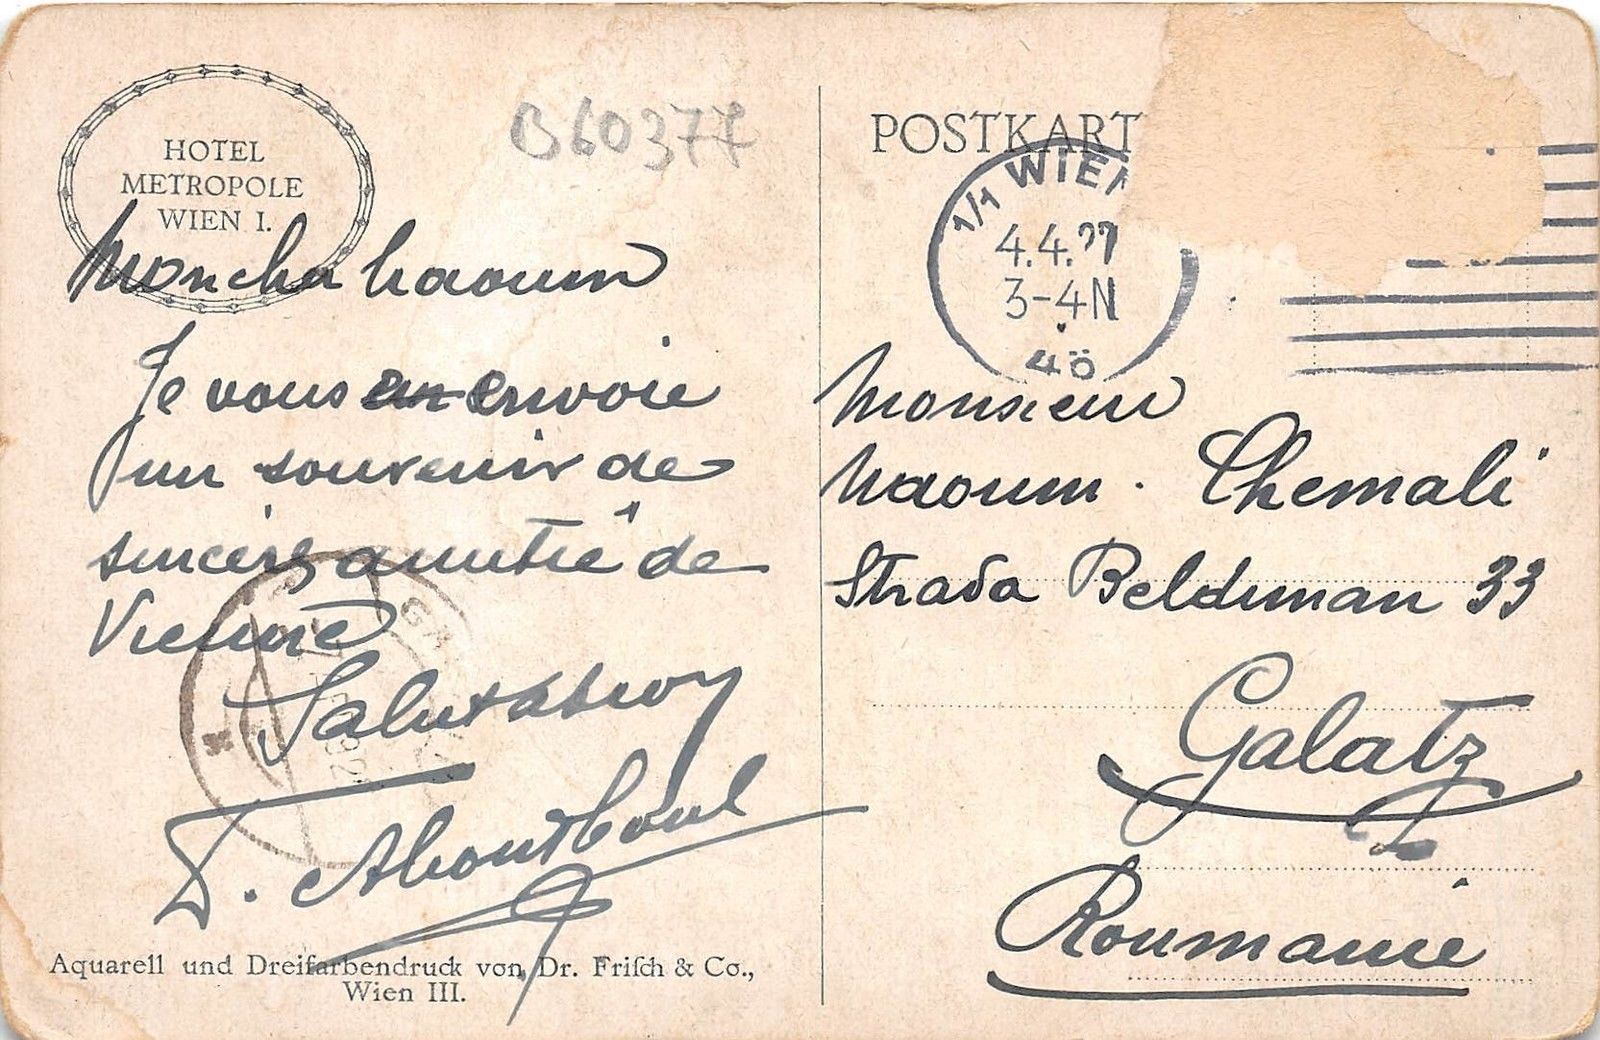 HOTEL
METROPOLE
WIEN I.
B60377
Mon cher Naoum
Je vous envoie
un souvenir de
sincère amitié de
Vienne
Salutations
Aquarell und Dreifarbendruck von Dr. Frisch & Co.,
Wien III.
POSTKART
1/1 WIEN
4.4.
3-4N
Monsieur
Naoum. Chemali
Strada Beldiman 33
Galatz
Roumanie